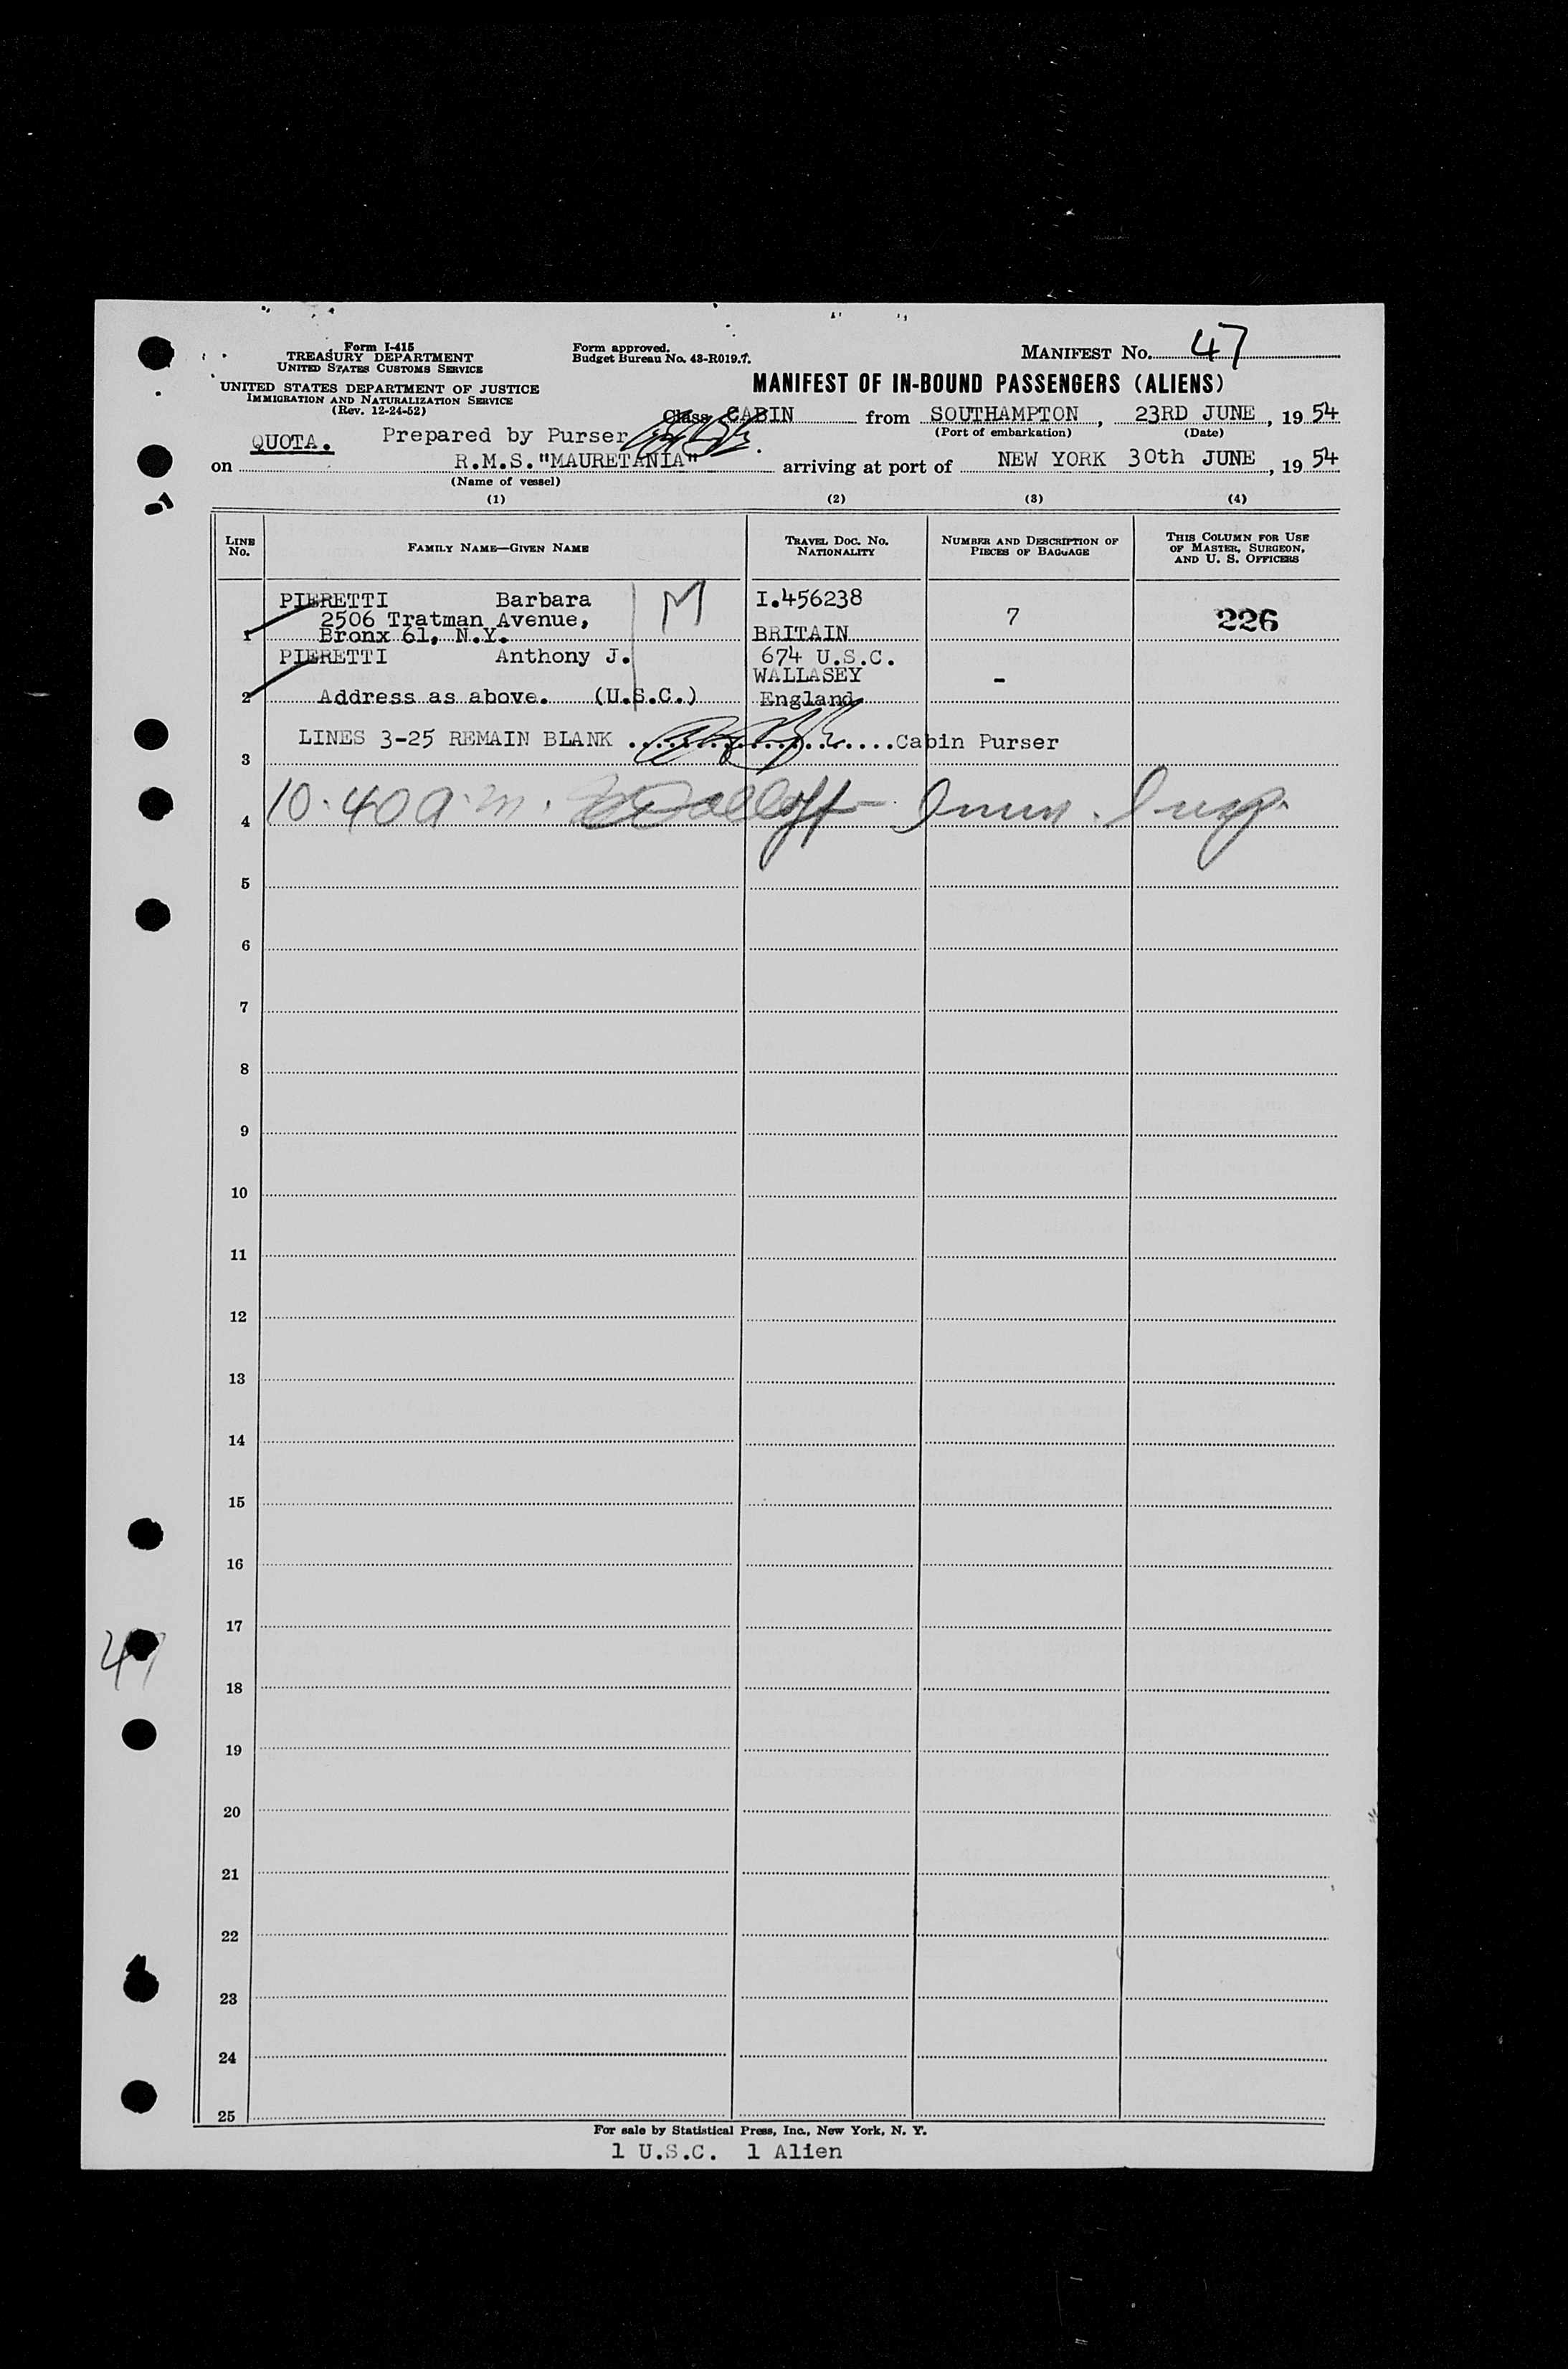 Form I-415
TREASURY DEPARTMENT
UNITED STATES CUSTOMS SERVICE
UNITED STATES DEPARTMENT OF JUSTICE
IMMIGRATION AND NATURALIZATION SERVICE
(Rev. 12-24-52)
Form approved.
Budget Bureau No. 43-R019.7.
MANIFEST No. 47
MANIFEST OF IN-BOUND PASSENGERS (ALIENS)
Class CABIN from SOUTHAMPTON, 23RD JUNE, 1954
(Port of embarkation) (Date)
QUOTA. Prepared by Purser
on R.M.S."MAURETANIA" arriving at port of NEW YORK 30th JUNE, 1954
(Name of vessel)
(1) (2) (3) (4)
LINE No. FAMILY NAME—GIVEN NAME TRAVEL DOC. No. NATIONALITY NUMBER AND DESCRIPTION OF PIECES OF BAGGAGE THIS COLUMN FOR USE OF MASTER, SURGEON, AND U. S. OFFICERS
PIERETTI Barbara M I.456238
2506 Tratman Avenue, 7 226
1 Bronx 61, N.Y. BRITAIN
PIERETTI Anthony J. 674 U.S.C.
WALLASEY -
2 Address as above. (U.S.C.) England
LINES 3-25 REMAIN BLANK ....................Cabin Purser
3
4 10.40 a.m. Imm. Insp.
5
6
7
8
9
10
11
12
13
14
15
16
17
47
18
19
20
21
22
23
24
25
For sale by Statistical Press, Inc., New York, N. Y.
1 U.S.C. 1 Alien